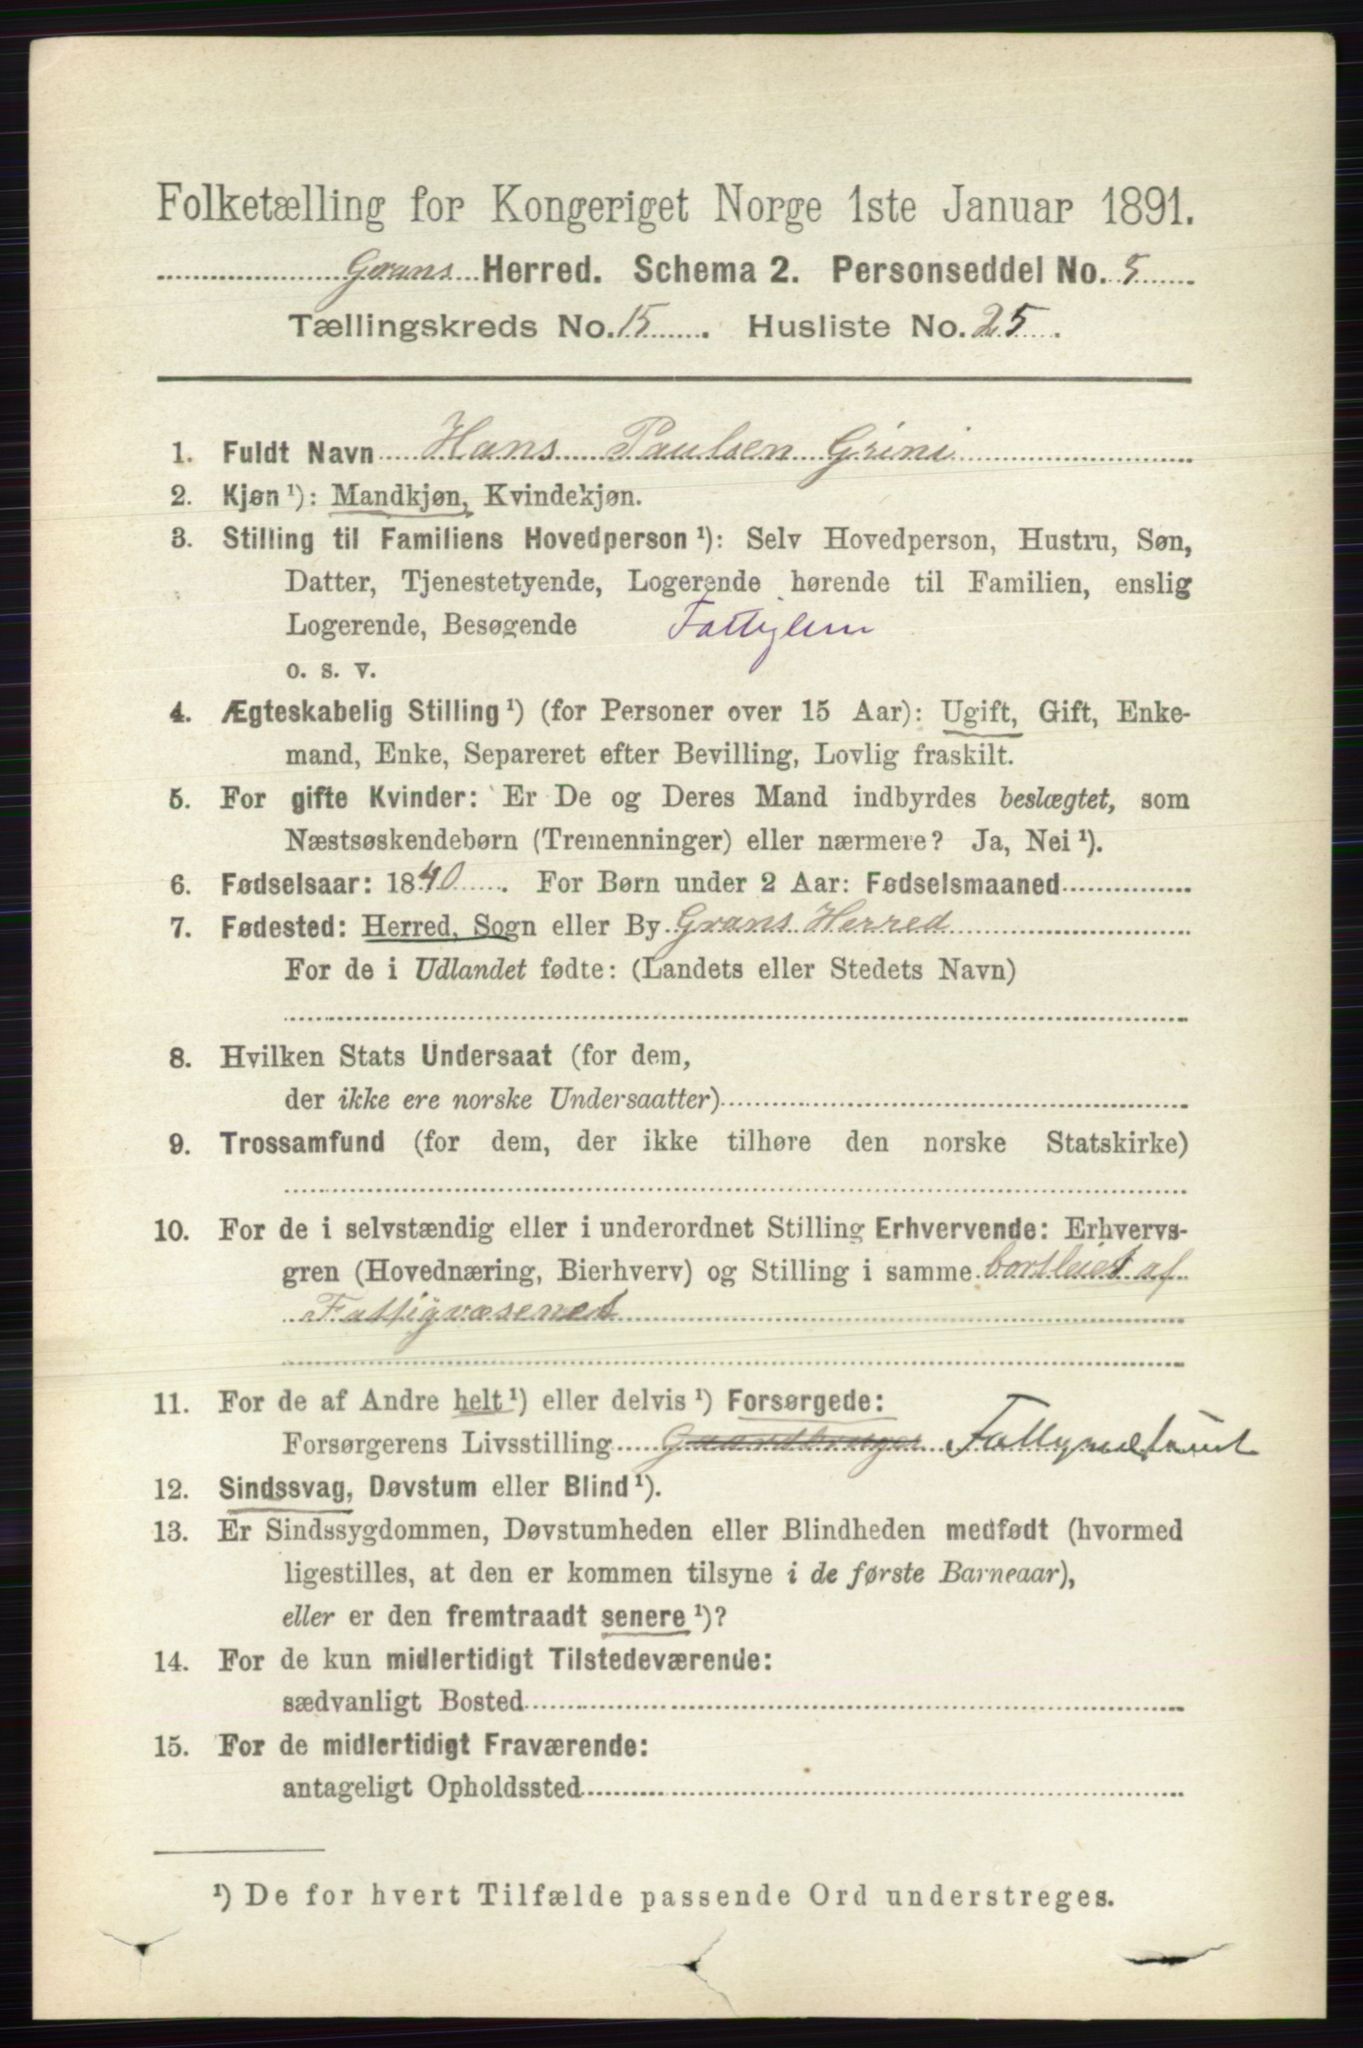 Folketælling for Kongeriget Norge 1ste Januar 1891.
Grans Herred. Schema 2. Personseddel No. 5
Tællingskreds No. 15. Husliste No. 25.
1. Fuldt Navn Hans Paulsen Grini
2. Kjøn ¹): Mandkjøn, Kvindekjøn.
3. Stilling til Familiens Hovedperson ¹): Selv Hovedperson, Hustru, Søn,
Datter, Tjenestetyende, Logerende hørende til Familien, enslig
Logerende, Besøgende Fattiglem
o. s. v.
4. Ægteskabelig Stilling ¹) (for Personer over 15 Aar): Ugift, Gift, Enke-
mand, Enke, Separeret efter Bevilling, Lovlig fraskilt.
5. For gifte Kvinder: Er De og Deres Mand indbyrdes beslægtet, som
Næstsøskendebørn (Tremenninger) eller nærmere? Ja, Nei ¹).
6. Fødselsaar: 1840. For Børn under 2 Aar: Fødselsmaaned
7. Fødested: Herred, Sogn eller By Grans Herred
For de i Udlandet fødte: (Landets eller Stedets Navn)
8. Hvilken Stats Undersaat (for dem,
der ikke ere norske Undersaatter)
9. Trossamfund (for dem, der ikke tilhøre den norske Statskirke)
10. For de i selvstændig eller i underordnet Stilling Erhvervende: Erhvervs-
gren (Hovednæring, Bierhverv) og Stilling i samme bortleiet af
Fattigvæsenet
11. For de af Andre helt ¹) eller delvis ¹) Forsørgede:
Forsørgerens Livsstilling Gaardbruger
12. Sindssvag, Døvstum eller Blind ¹).
13. Er Sindssygdommen, Døvstumheden eller Blindheden medfødt (hvormed
ligestilles, at den er kommen tilsyne i de første Barneaar),
eller er den fremtraadt senere ¹)?
14. For de kun midlertidigt Tilstedeværende:
sædvanligt Bosted
15. For de midlertidigt Fraværende:
antageligt Opholdssted
¹) De for hvert Tilfælde passende Ord understreges.